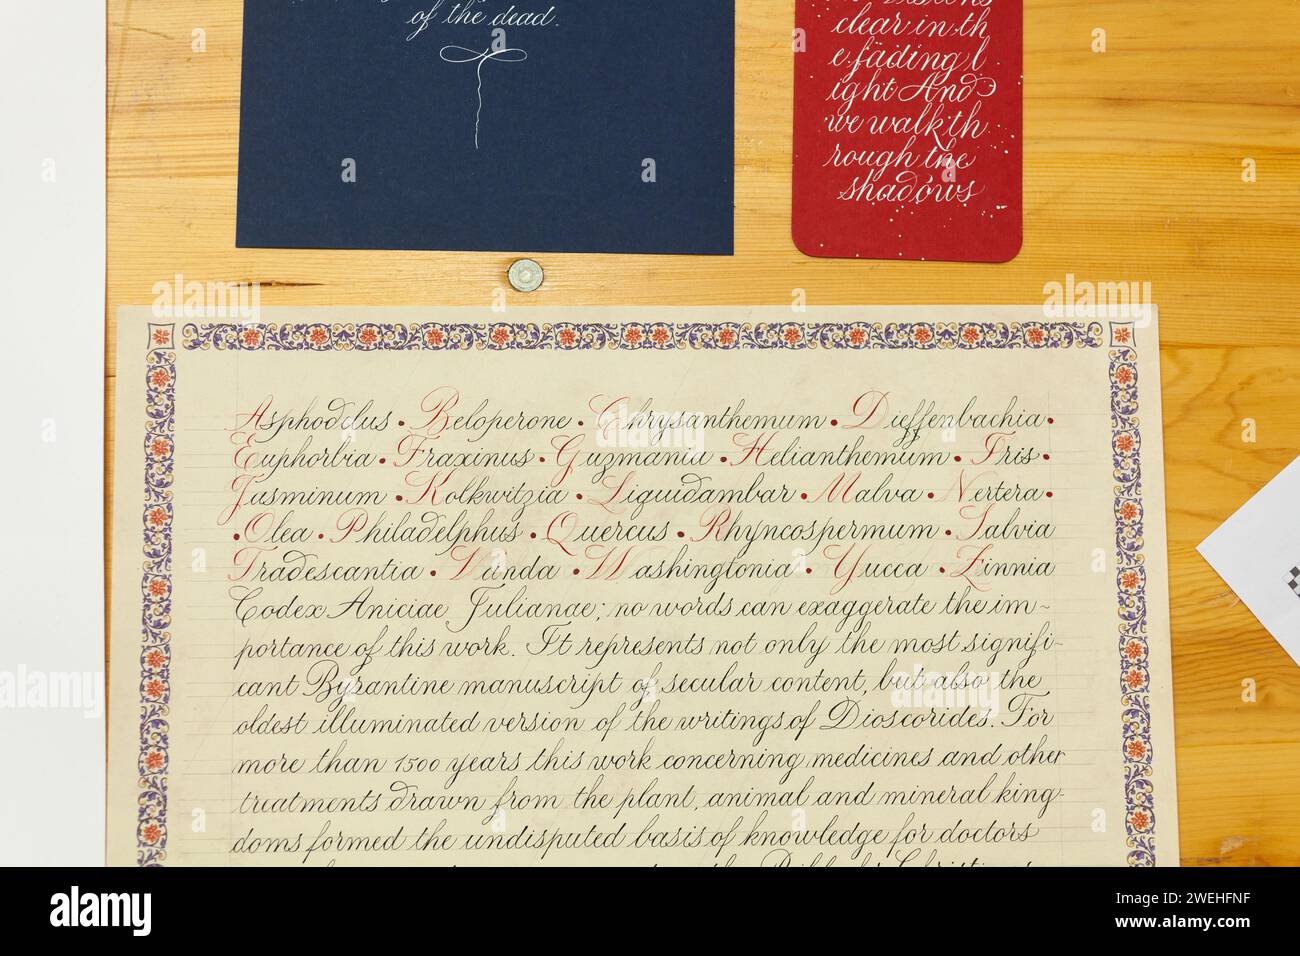 of the dead.
clear in th
e fäding l
ight And
we walk th
rough the
shadows
Asphodelus • Beloperone • Chrysanthemum • Dieffenbachia •
Euphorbia • Fraxinus • Guzmania • Helianthemum • Iris •
Jasminum • Kolkwitzia • Liquidambar • Malva • Nertera •
• Olea • Philadelphus • Quercus • Rhyncospermum • Salvia
Tradescantia • Vanda • Washingtonia • Yucca • Zinnia
Codex Aniciae Julianae; no words can exaggerate the im~
portance of this work. It represents not only the most signifi-
cant Byzantine manuscript of secular content, but also the
oldest illuminated version of the writings of Dioscorides. For
more than 1500 years this work concerning medicines and other
treatments drawn from the plant, animal and mineral king-
doms formed the undisputed basis of knowledge for doctors
alamy
Image ID: 2WEHFNF
www.alamy.com